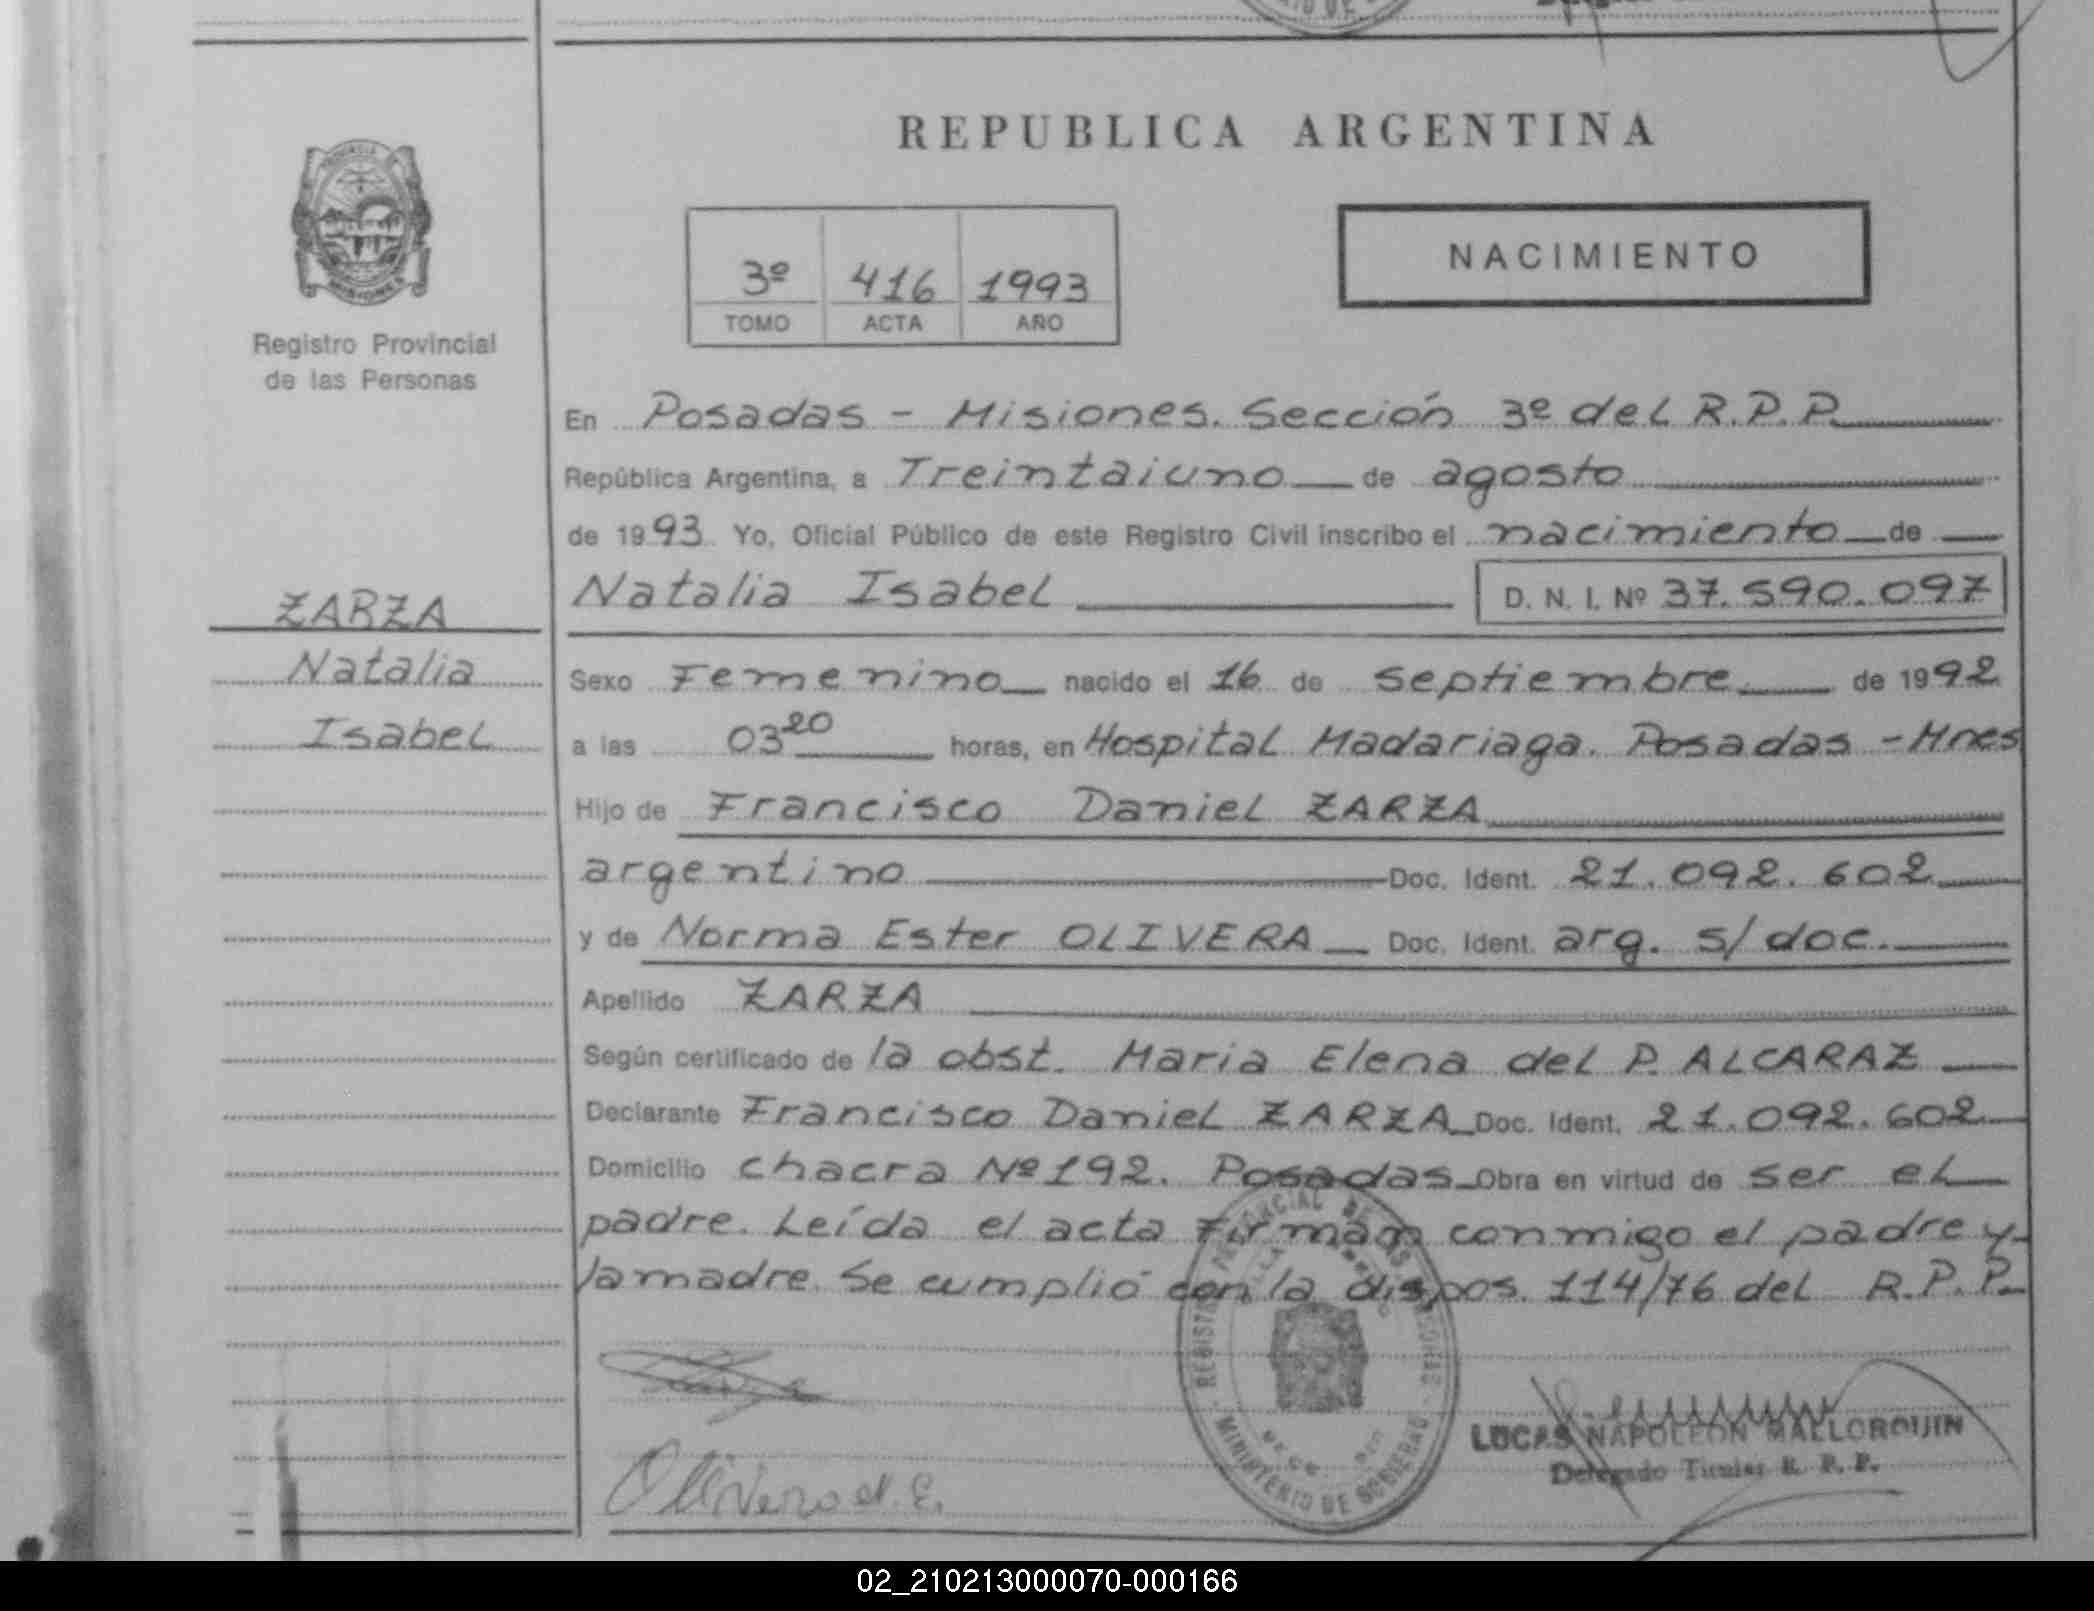 REPUBLICA ARGENTINA
NACIMIENTO
3º 416 1993
TOMO ACTA AÑO
Registro Provincial
de las Personas
En Posadas - Misiones. Sección 3º del R.P.P.
República Argentina, a Treintaiuno de agosto
de 1993 Yo, Oficial Público de este Registro Civil inscribo el nacimiento de
Natalia Isabel D. N. I. Nº 37.590.097
ZARZA
Natalia
Isabel
Sexo Femenino nacido el 16 de septiembre de 1992
a las 03 20 horas, en Hospital Madariaga. Posadas - Mnes
Hijo de Francisco Daniel ZARZA
argentino Doc. Ident. 21.092.602
y de Norma Ester OLIVERA Doc. Ident. arg. s/doc.
Apellido ZARZA
Según certificado de la obst. Maria Elena del P. ALCARAZ
Declarante Francisco Daniel ZARZA Doc. Ident. 21.092.602
Domicilio chacra Nº 192. Posadas Obra en virtud de ser el
padre. Leída el acta firman conmigo el padre y
la madre. Se cumplió con la dispos. 114/76 del R.P.P.
REGISTRO PROVINCIAL DE LAS PERSONAS
MINISTERIO DE GOBIERNO
LUCAS NAPOLEON MALLORQUIN
Delegado Titular R. P. P.
02_210213000070-000166